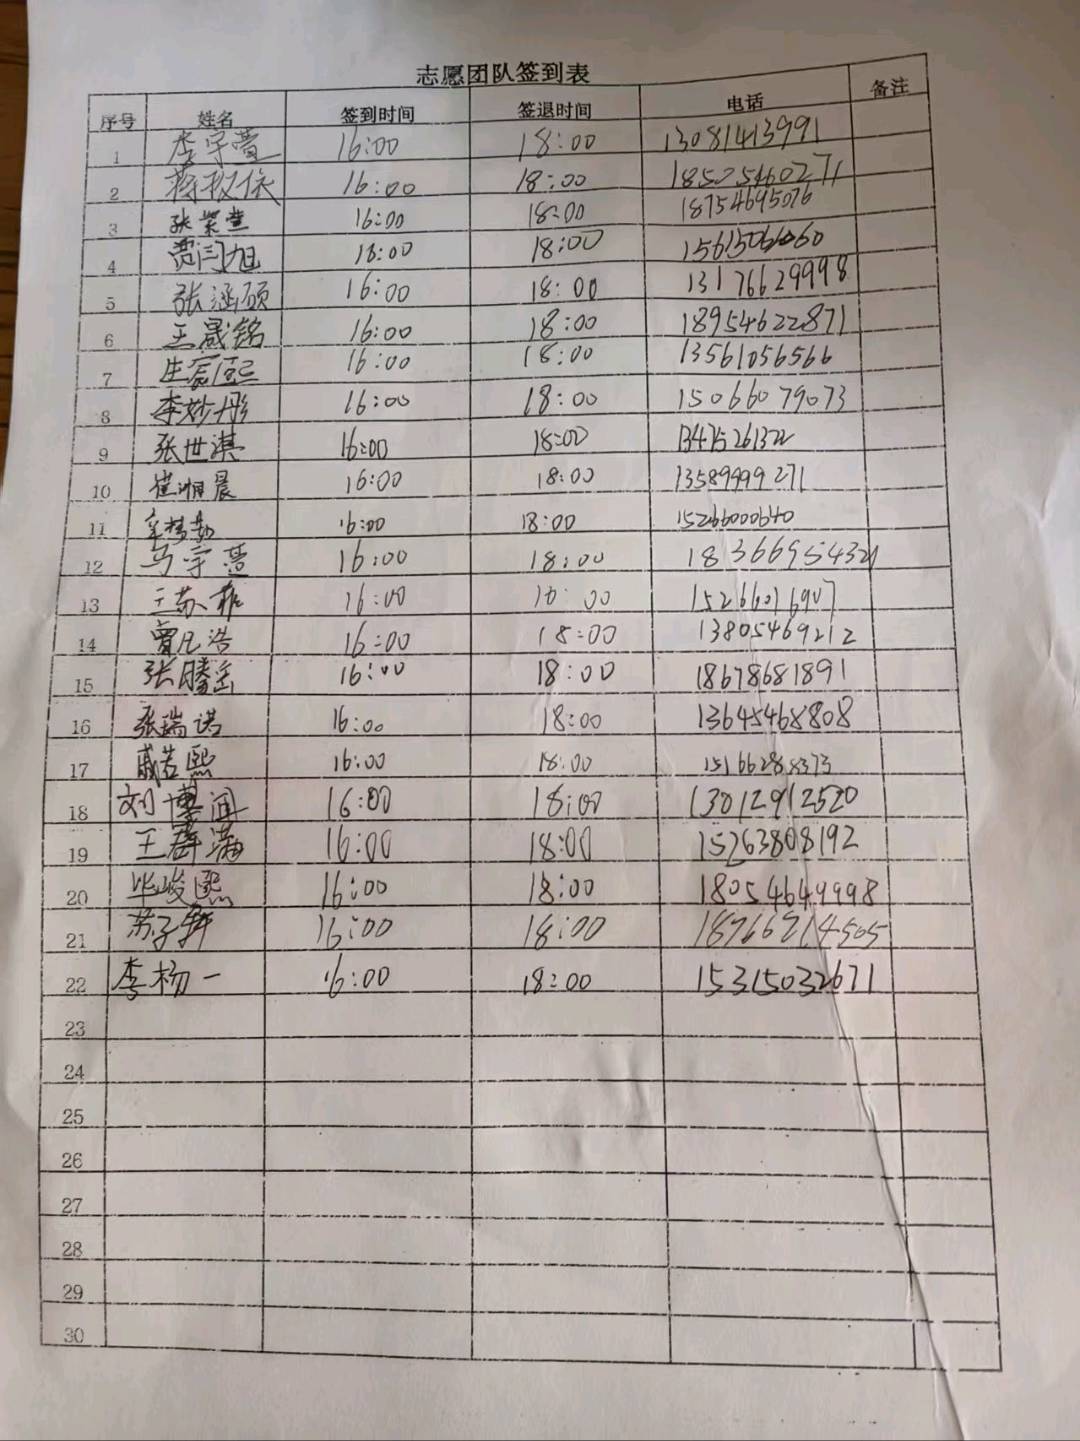 志愿团队签到表
序号 姓名 签到时间 签退时间 电话 备注
1 李宇萱 16:00 18:00 13081413991
2 16:00 18:00 18505460271
3 张紫萱 16:00 18:00 18754695076
4 贾闫旭 18:00 18:00
5 张涵硕 16:00 18:00 13176629998
6 王晟铭 16:00 18:00 18954622871
7 16:00 18:00 13561056566
8 李妙彤 16:00 18:00 15066079073
9 张世淇 16:00 18:00 13475261322
10 崔湘晨 16:00 18:00 13589999271
11 16:00 18:00 15266000640
12 马宇萱 16:00 18:00 18366954321
13 王苏菲 16:00 18:00 15266016907
14 贾凡浩 16:00 18:00 13805469212
15 张腾岳 16:00 18:00 18678681891
16 张瑞诺 16:00 18:00 13645468808
17 戚若熙 16:00 18:00 15166288373
18 刘博闻 16:00 18:00 13012912520
19 16:00 18:00 15263808192
20 毕峻熙 16:00 18:00 18054649998
21 苏子轩 16:00 18:00 18766714505
22 李杨一 16:00 18:00 15315032671
23
24
25
26
27
28
29
30